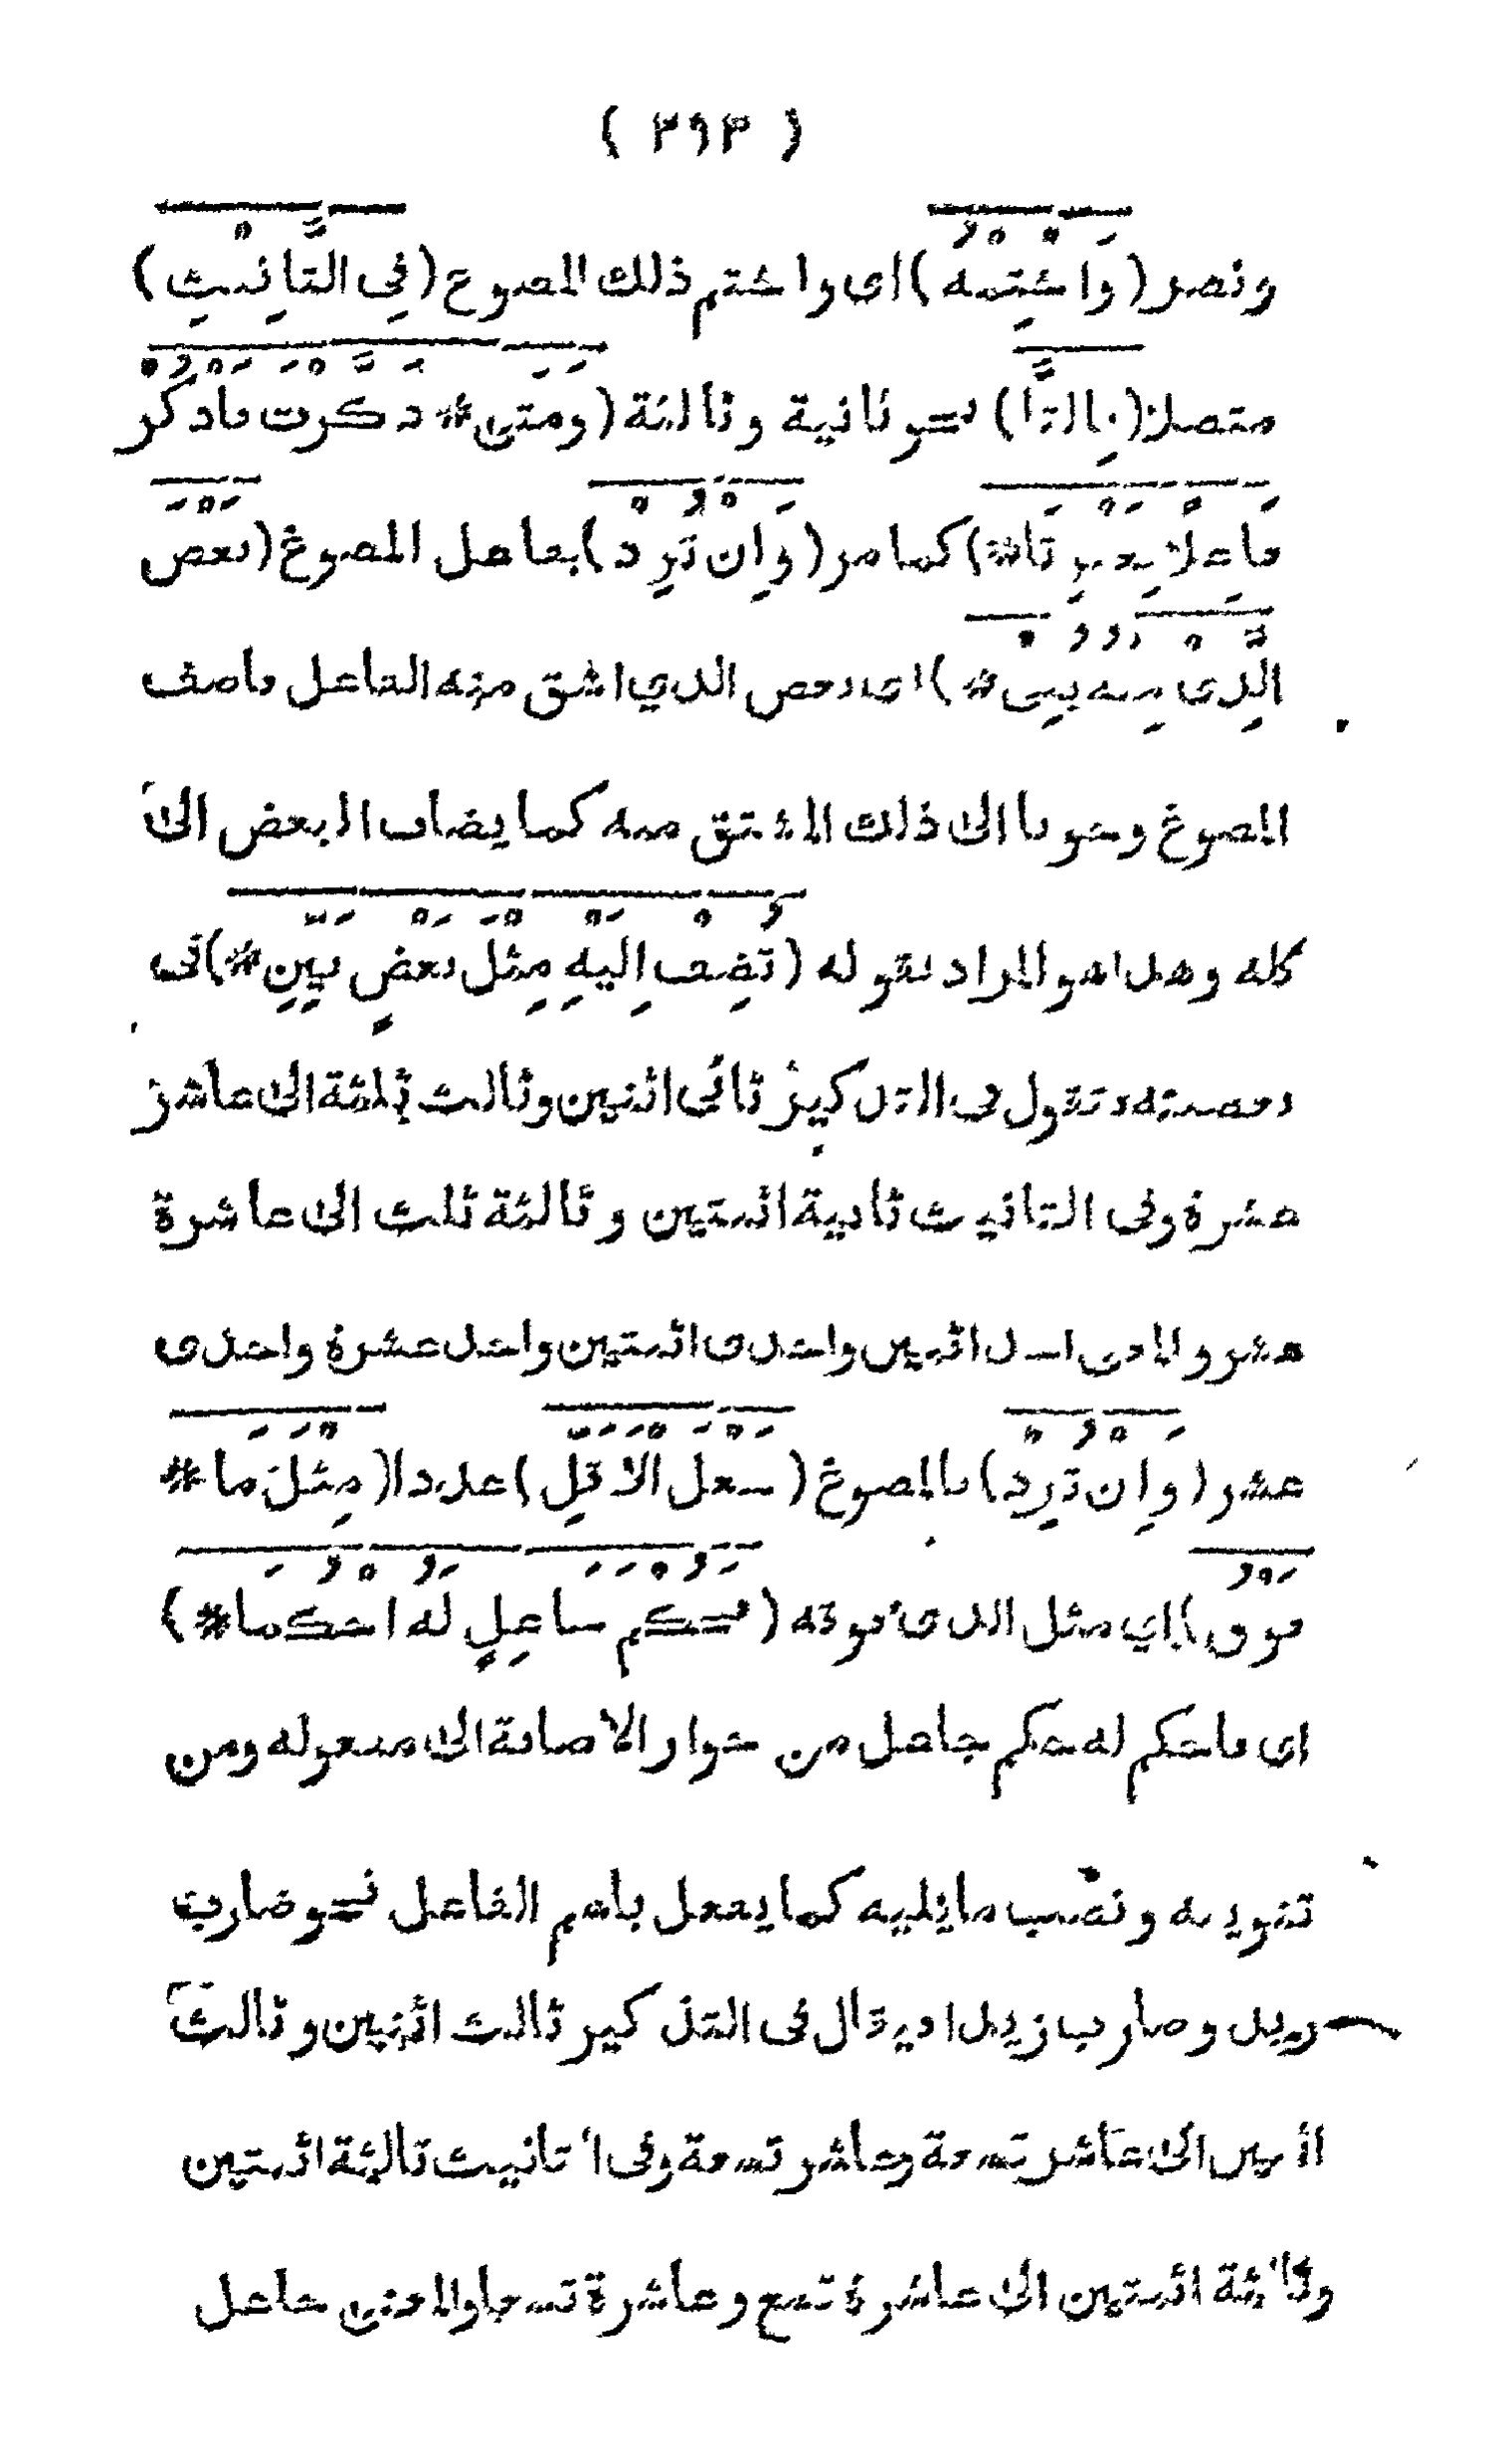 ( ٣٩٣ )
ونصر (وَاخْتِمْهُ) اى واختم ذلك المصوغ (فِى التَّانِيْثِ)
متصلا (بِالتَّا) نحو ثانية وثالثة (وَمَتٰى # ذَكَّرْتَ فَاذْكُرْ
فَاعِلًا بِغَيْرِ تَا #) كما مر (وَاِنْ تُرِدْ) بفاعل المصوغ (بَعْضَ
الَّذِىْ مِنْهُ بُنِىْ #) اى بعض الذي اشق منه الفاعل فاضف
المصوغ وجوبا الى ذلك المشتق منه كما يضاف البعض الى
كله وهذا هو المراد بقوله (تُضِفْ اِلَيْهِ مِثْلَ بَعْضٍ بَيِّنِ #) فى
بعضيته وتقول فى التذكير ثانى اثنين وثالث ثلثة الى عاشر
عشرة وفى التانيث ثانية اثنتين وثالثة ثلث الى عاشرة
عشر والمادى احد اثنين واحدى اثنتين واحد عشرة واحدى
عشر (وَاِنْ تُرِدْ) بالمصوغ (جَعْلَ الْاَقَلِّ) عددا (مِثْلَ مَا #
فَوْقُ) اي مثل الذى فوقه (فَحُكْمَ جَاعِلٍ لَهُ احْكُمَا #)
اى فاحكم له حكم جاعل من جواز الاضافة الى مفعوله ومن
تنوينه ونصب مايليه كما يفعل باسم الفاعل نحو ضارب
زيد وضارب زيدا فيقال فى التذكير ثالث اثنين وثالث
اثنين الى عاشر تسعة وعاشر تسعة وفى التانيث ثالثة اثنتين
وثالثة اثنتين الى عاشرة تسع وعاشرة تسعا والمعنى جاعل